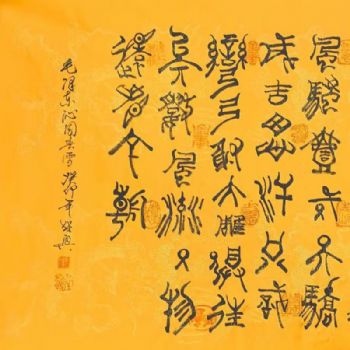 風騷壹代天驕
成吉思汗只識
彎弓射大雕俱往
矣數風流人物
還看今朝
毛澤東沁園春雪癸卯年